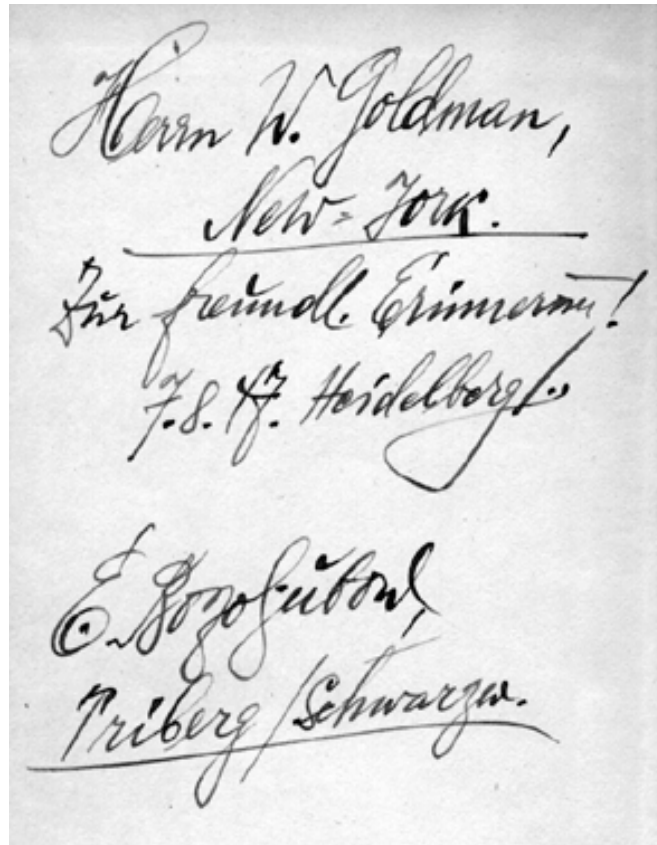 Herrn W. Goldman,
New-York.
Zur freundl. Erinnerung!
7.8.47. Heidelberg.
E. Bogoljubow,
Triberg/Schwarzw.